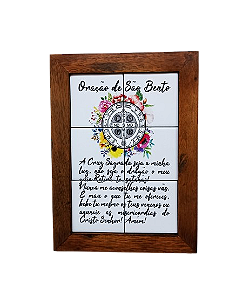 Oração de São Bento
A Cruz Sagrada seja a minha
luz, não seja o dragão o meu
guia. Retira-te, satanás!
Nunca me aconselhes coisas vãs.
É mau o que tu me ofereces,
bebe tu mesmo os teus venenos eu
quero as misericórdias do
Cristo Senhor! Amém!